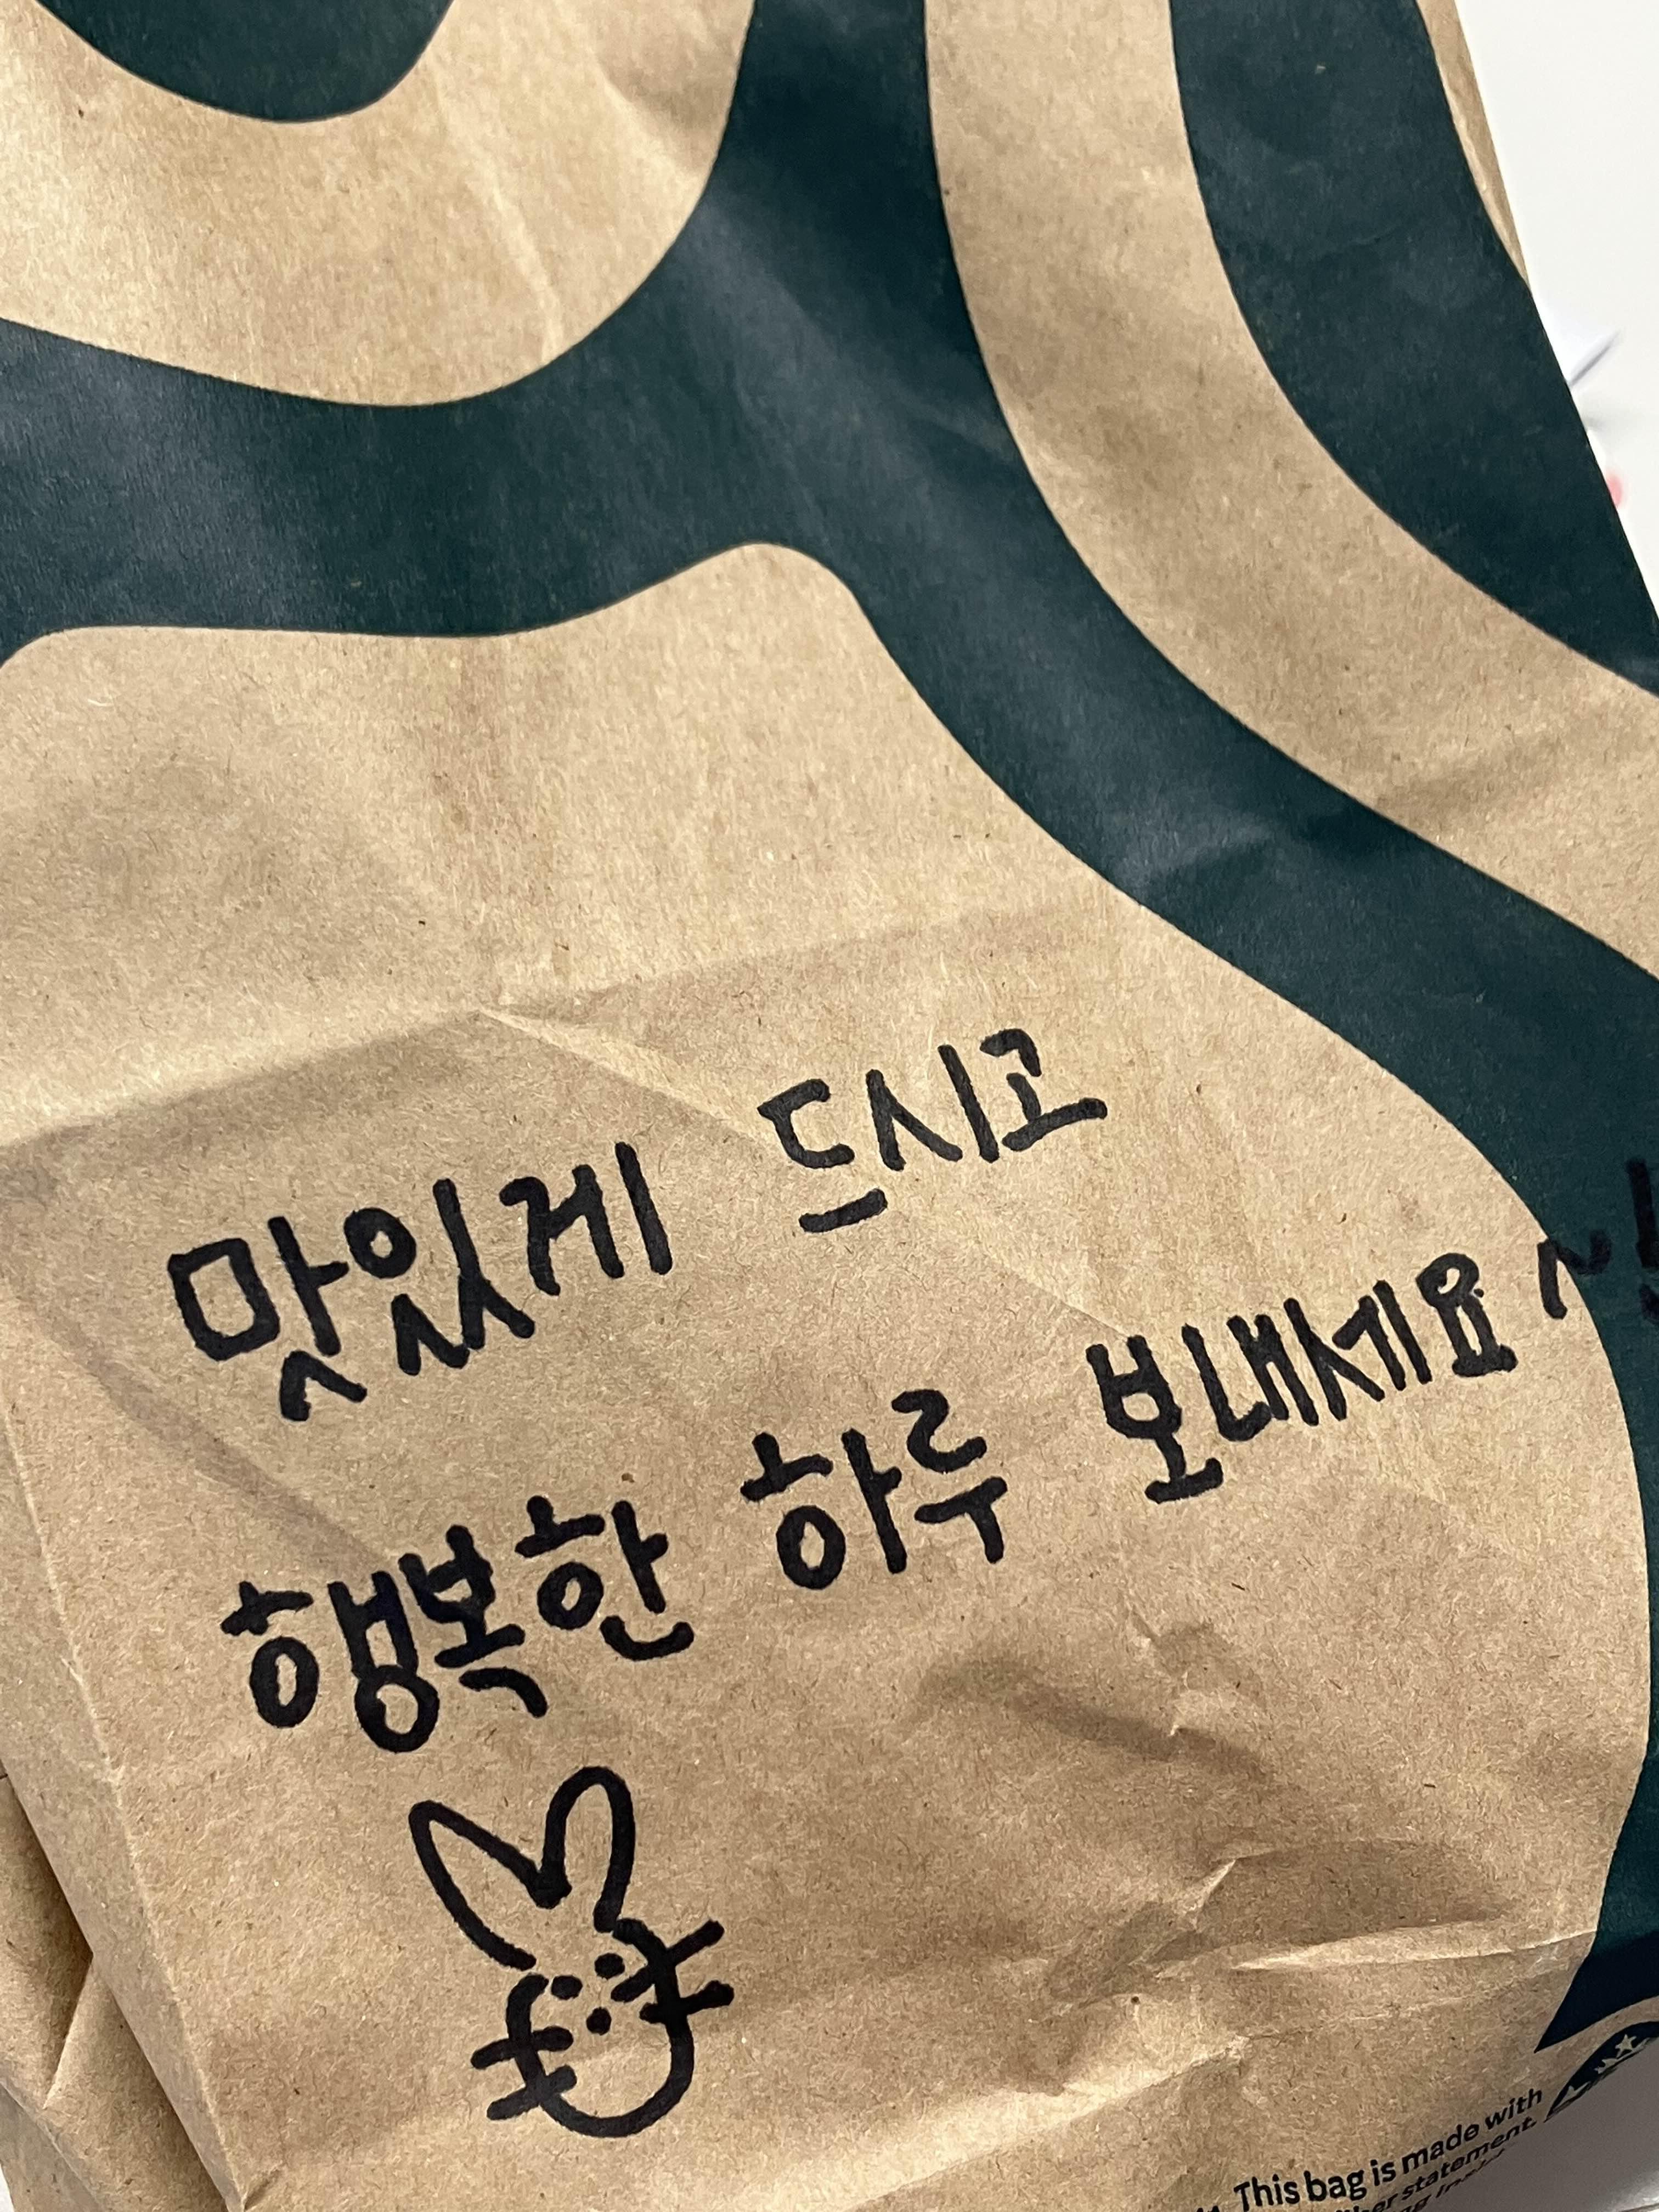 맛있게 드시고
행복한 하루 보내세요
This bag is made with
statement.